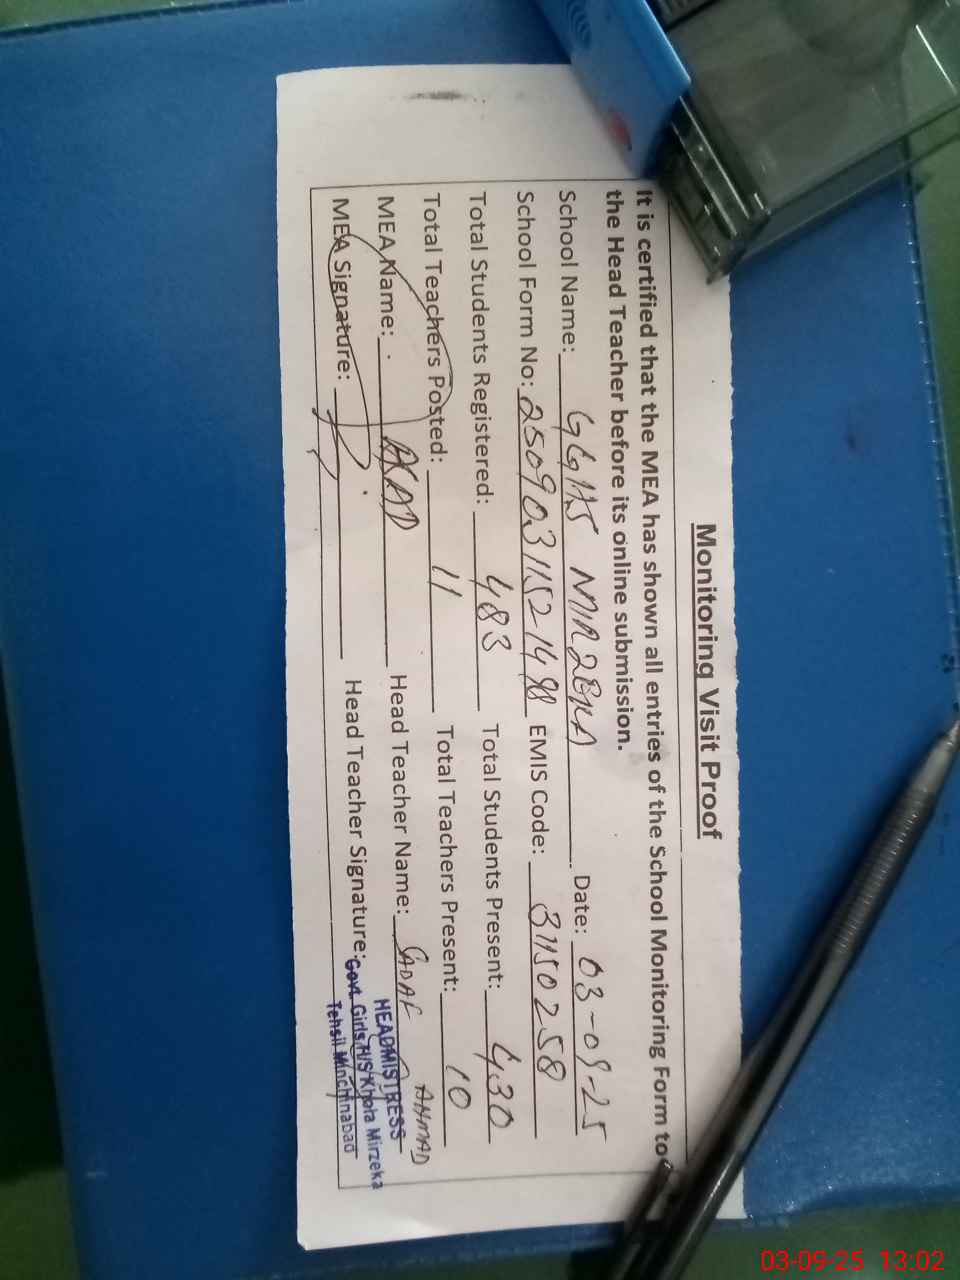 Monitoring Visit Proof
It is certified that the MEA has shown all entries of the School Monitoring Form to
the Head Teacher before its online submission.
School Name: GGHS MIRZEKA Date: 03-09-25
School Form No: EMIS Code: 31150258
Total Students Registered: 483 Total Students Present: 430
Total Teachers Posted: 11 Total Teachers Present: 10
MEA Name: Head Teacher Name: SADAF AHMAD
MEA Signature: Head Teacher Signature:
HEADMISTRESS
Govt. Girls H/S Khola Mirzeka
Tehsil Minchinabad
03-09-25 13:02